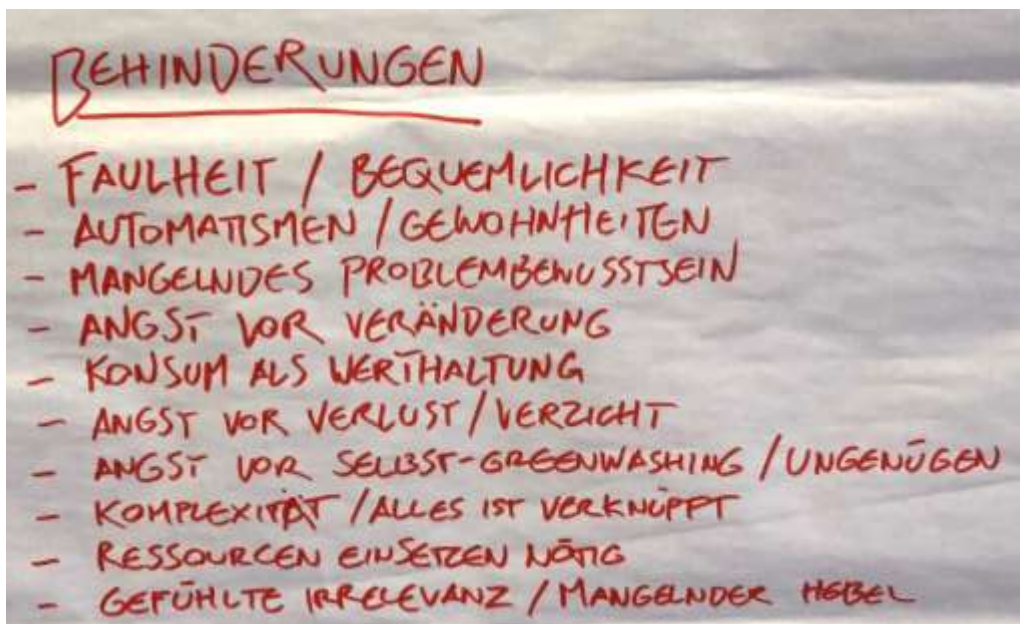 BEHINDERUNGEN
- FAULHEIT / BEQUEMLICHKEIT
- AUTOMATISMEN / GEWOHNHEITEN
- MANGELNDES PROBLEMBEWUSSTSEIN
- ANGST VOR VERÄNDERUNG
- KONSUM ALS WERTHALTUNG
- ANGST VOR VERLUST / VERZICHT
- ANGST VOR SELBST-GREENWASHING / UNGENÜGEN
- KOMPLEXITÄT / ALLES IST VERKNÜPFT
- RESSOURCEN EINSETZEN NÖTIG
- GEFÜHLTE IRRELEVANZ / MANGELNDER HEBEL